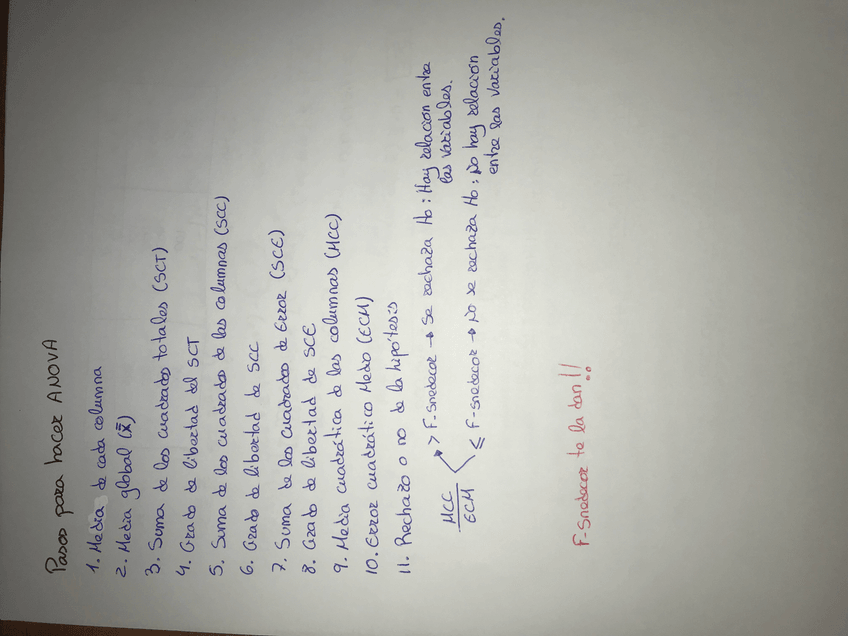 Pasos para hacer ANOVA
1. Media de cada columna
2. Media global (x̿)
3. Suma de los cuadrados totales (SCT)
4. Grado de libertad del SCT
5. Suma de los cuadrados de las columnas (SCC)
6. Grado de libertad de SCC
7. Suma de los cuadrados de Error (SCE)
8. Grado de libertad de SCE
9. Media cuadrática de las columnas (MCC)
10. Error cuadrático Medio (ECM)
11. Rechazo o no de la hipótesis
MCC/ECM
> F-snedecor → Se rechaza Ho: Hay relación entre
las variables.
≤ F-snedecor → No se rechaza Ho: No hay relación
entre las variables.
F-snedecor te la dan!!